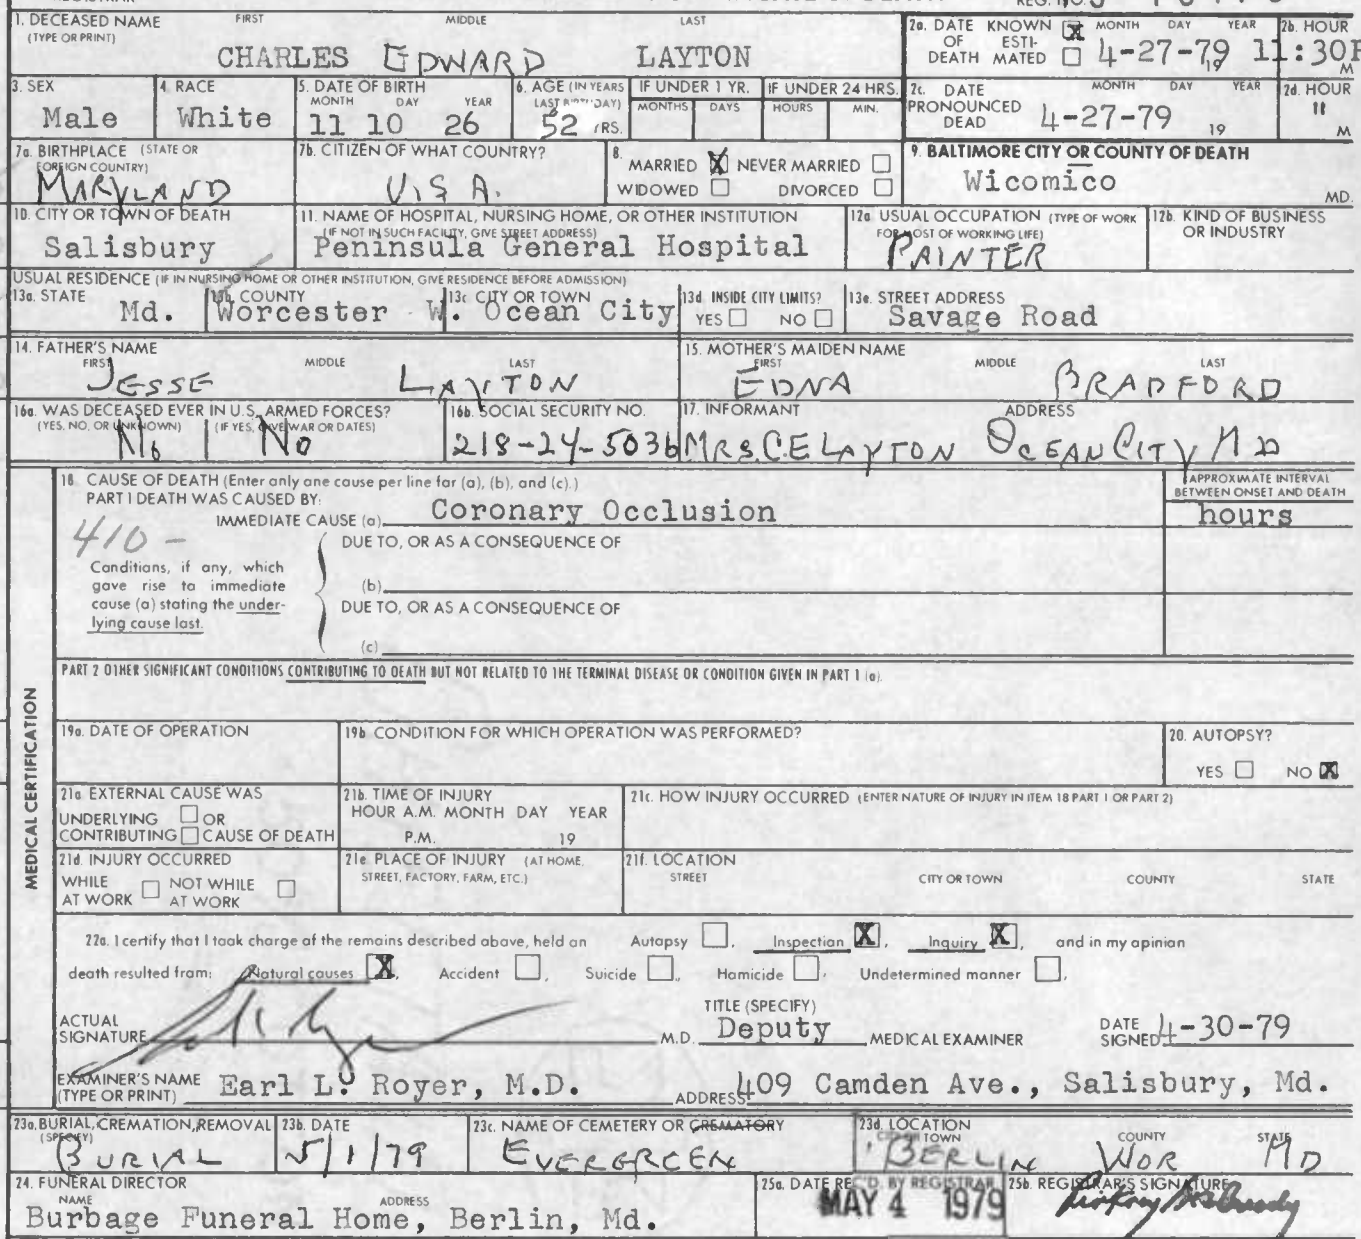 1. DECEASED NAME FIRST MIDDLE LAST
(TYPE OR PRINT)
CHARLES EDWARD LAYTON
2a. DATE KNOWN X MONTH DAY YEAR
OF ESTI-
DEATH MATED 4-27-79 19
2b. HOUR
11:30P M
3. SEX
Male
4. RACE
White
5. DATE OF BIRTH
MONTH DAY YEAR
11 10 26
6. AGE (IN YEARS
LAST BIRTHDAY)
52 YRS.
IF UNDER 1 YR.
MONTHS DAYS
IF UNDER 24 HRS.
HOURS MIN.
2c. DATE MONTH DAY YEAR
PRONOUNCED
DEAD 4-27-79 19
2d. HOUR
" M
7a. BIRTHPLACE (STATE OR
FOREIGN COUNTRY)
MARYLAND
7b. CITIZEN OF WHAT COUNTRY?
U.S.A.
8.
MARRIED X NEVER MARRIED
WIDOWED DIVORCED
9. BALTIMORE CITY OR COUNTY OF DEATH
Wicomico MD.
10. CITY OR TOWN OF DEATH
Salisbury
11. NAME OF HOSPITAL, NURSING HOME, OR OTHER INSTITUTION
(IF NOT IN SUCH FACILITY, GIVE STREET ADDRESS)
Peninsula General Hospital
12a. USUAL OCCUPATION (TYPE OF WORK
FOR MOST OF WORKING LIFE)
PAINTER
12b. KIND OF BUSINESS
OR INDUSTRY
USUAL RESIDENCE (IF IN NURSING HOME OR OTHER INSTITUTION, GIVE RESIDENCE BEFORE ADMISSION)
13a. STATE
Md.
13b. COUNTY
Worcester
13c. CITY OR TOWN
W. Ocean City
13d. INSIDE CITY LIMITS?
YES NO
13e. STREET ADDRESS
Savage Road
14. FATHER'S NAME
FIRST MIDDLE LAST
JESSE LAYTON
15. MOTHER'S MAIDEN NAME
FIRST MIDDLE LAST
EDNA BRADFORD
16a. WAS DECEASED EVER IN U.S. ARMED FORCES?
(YES, NO, OR UNKNOWN) (IF YES, GIVE WAR OR DATES)
No No
16b. SOCIAL SECURITY NO.
218-24-5036
17. INFORMANT ADDRESS
MRS. C.E LAYTON OCEAN CITY MD
18. CAUSE OF DEATH (Enter only one cause per line for (a), (b), and (c).)
PART I DEATH WAS CAUSED BY:
IMMEDIATE CAUSE (a) Coronary Occlusion
APPROXIMATE INTERVAL
BETWEEN ONSET AND DEATH
hours
410 -
DUE TO, OR AS A CONSEQUENCE OF
Conditions, if any, which
gave rise to immediate
cause (a) stating the under-
lying cause last.
(b)
DUE TO, OR AS A CONSEQUENCE OF
(c)
PART 2 OTHER SIGNIFICANT CONDITIONS CONTRIBUTING TO DEATH BUT NOT RELATED TO THE TERMINAL DISEASE OR CONDITION GIVEN IN PART 1 (a).
MEDICAL CERTIFICATION
19a. DATE OF OPERATION
19b CONDITION FOR WHICH OPERATION WAS PERFORMED?
20. AUTOPSY?
YES NO X
21a. EXTERNAL CAUSE WAS
UNDERLYING OR
CONTRIBUTING CAUSE OF DEATH
21b. TIME OF INJURY
HOUR A.M. MONTH DAY YEAR
P.M. 19
21c. HOW INJURY OCCURRED (ENTER NATURE OF INJURY IN ITEM 18 PART 1 OR PART 2)
21d. INJURY OCCURRED
WHILE NOT WHILE
AT WORK AT WORK
21e. PLACE OF INJURY (AT HOME,
STREET, FACTORY, FARM, ETC.)
21f. LOCATION
STREET CITY OR TOWN COUNTY STATE
22a. I certify that I took charge of the remains described above, held an Autopsy , Inspection X, Inquiry X, and in my opinion
death resulted from: Natural causes X, Accident , Suicide , Homicide , Undetermined manner ,
ACTUAL
SIGNATURE M.D.
TITLE (SPECIFY)
Deputy MEDICAL EXAMINER
DATE
SIGNED 4-30-79
EXAMINER'S NAME
(TYPE OR PRINT) Earl L. Royer, M.D. ADDRESS 409 Camden Ave., Salisbury, Md.
23a. BURIAL, CREMATION, REMOVAL
(SPECIFY)
BURIAL
23b. DATE
5/1/79
23c. NAME OF CEMETERY OR CREMATORY
EVERGREEN
23d. LOCATION
CITY OR TOWN COUNTY STATE
BERLIN WOR MD
24. FUNERAL DIRECTOR
NAME ADDRESS
Burbage Funeral Home, Berlin, Md.
25a. DATE REC'D. BY REGISTRAR
MAY 4 1979
25b. REGISTRAR'S SIGNATURE